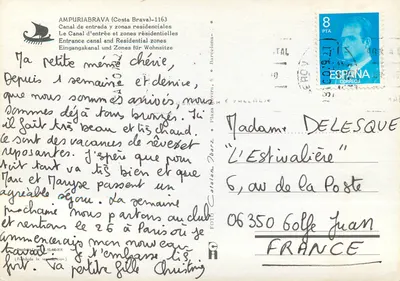 AMPURIABRAVA (Costa Brava)-1163
Canal de entrada y zonas residenciales
Le Canal d'entrée et zones résidentielles
Entrance canal and Residential zones
Eingangskanal und Zones für Wohnsitze
8
PTA
ESPAÑA
CORREOS
Ma petite mémé chérie,
Depuis 1 semaine et demie,
que nous sommes arrivés, nous
sommes déjà tous bronzés. Ici
il fait très beau et très chaud.
Ce sont des vacances de rêves et
reposantes. J'espère que pour
toi tout va très bien et que
Man et Maryse passent un
agréable séjour. La semaine
prochaine nous partons au club
et rentrons le 26 à Paris où je
commencerais mon nouveau
travail. Je t'embrasse très
fort. Ta petite fille Christine
Madame DELESQUE
"L'Estivalière"
6, av de la Poste
06350 Golfe Juan
FRANCE